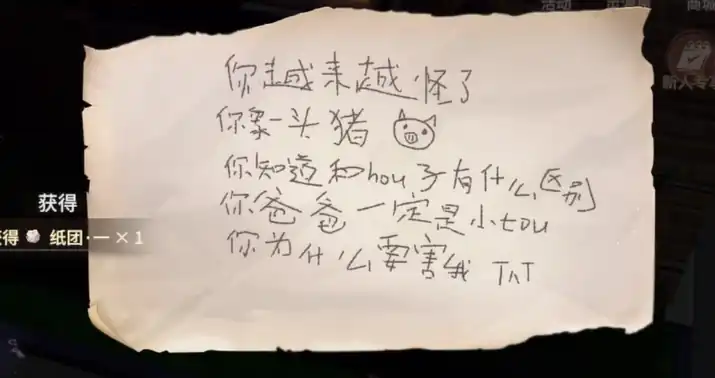 活动
商城
新人专
你越来越怪了
你象一头猪
你知道和hou子有什么区别
你爸爸一定是小tou
你为什么要害我 TAT
获得
获得 纸团·一 × 1